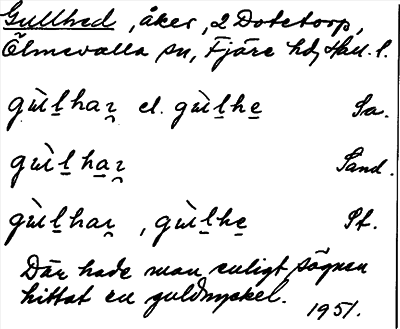 Gullhed, åker, 2 Dotetorp,
Ölmevalla sn, Fjäre hd, Hall. l.
gùl̲har̲ el. gùl̲he̲ Sa.
gùl̲ha̲r̲ Sand.
gùl̲har̲, gùl̲he̲ St.
Där hade man enligt sägnen
hittat en guldnyckel.
1951.